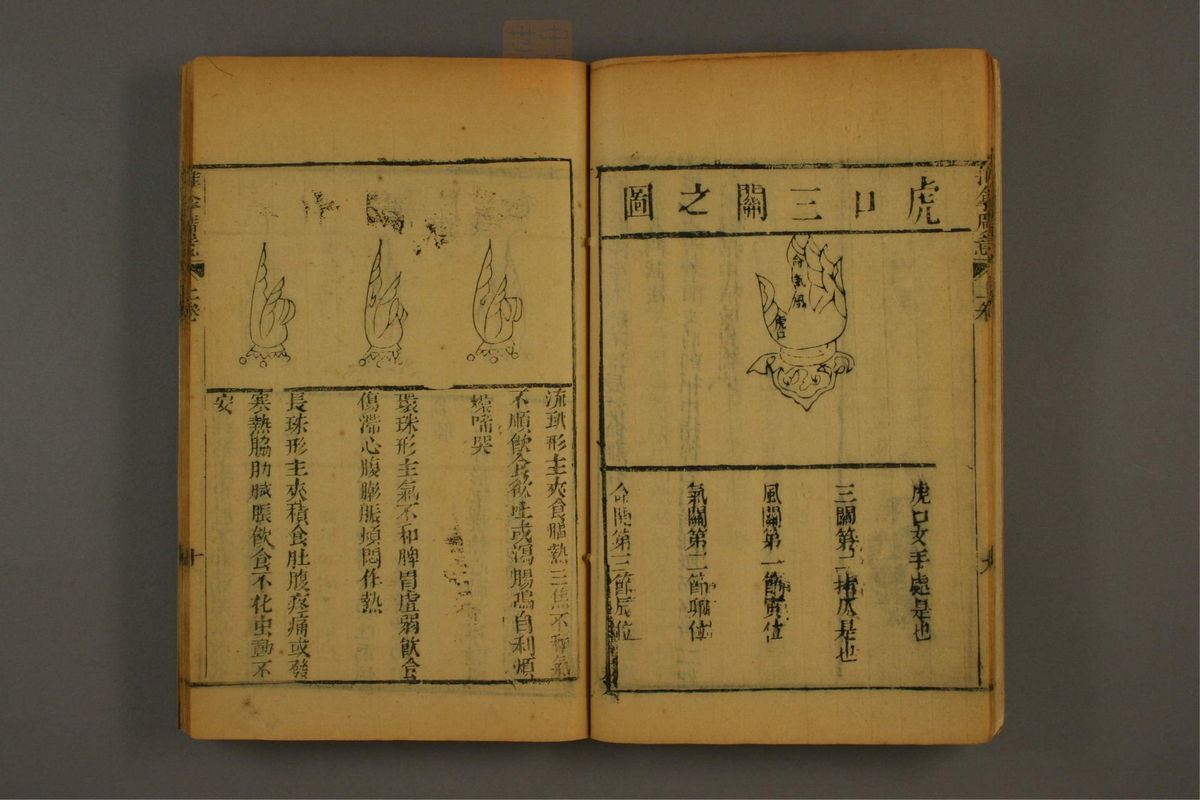 虎口三關之圖
命氣風
虎口
虎口叉手處是也
三關第二指仄是也
風關第一節寅位
氣關第二節卯位
命關第三節辰位
流珠形主夾食膈熱三焦不和氣
不順飲食欲吐或瀉腸鳴自利煩
燥啼哭
環珠形主氣不和脾胃虛弱飲食
傷滯心腹膨脹煩悶作熱
長珠形主夾積食肚腹疼痛或發
寒熱脇肋臌脹飲食不化虫動不
安
上卷
九
十